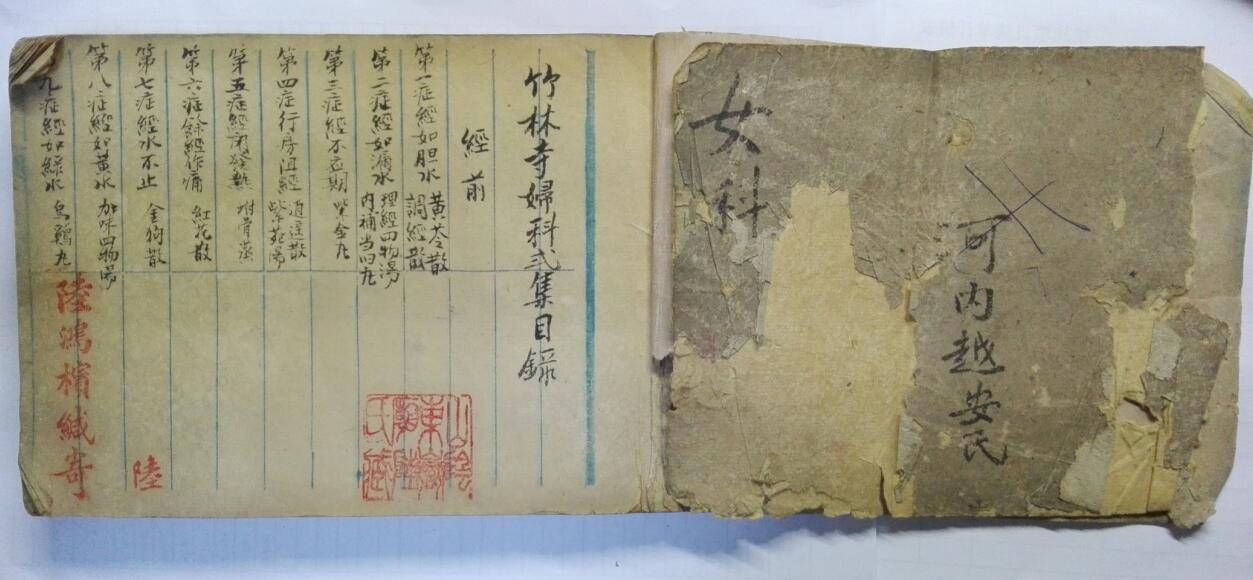 女科
可内越安民
竹林寺婦科弍集目錄
經前
第一症經如胆水 黄芩散 調經散
第二症經如漏水 理經四物湯 内補当归丸
第三症經不应期 紫金丸
第四症行房沮經 逍遥散 紫苑湯
第五症經闭發熱 骨蒸
第六症餘經作痛 紅花散
第七症經水不止 金狗散
第八症經如黄水 加味四物湯
九症經如綠水 烏鷄丸
陸鴻檳緘寄
陸